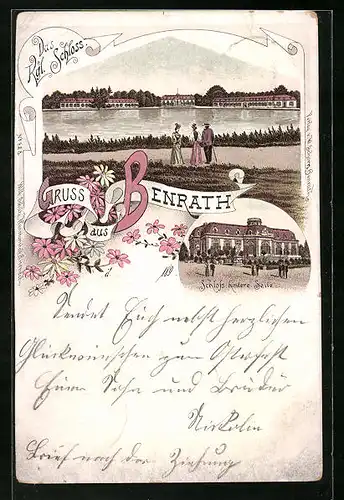 Das
Kgl. Schloss.
GRUSS
aus
BENRATH
Schloss hintere Seite.
Sendet Euch nebst herzlichen
Glückwünschen zum Osterfest
Euer Sohn und Bruder
Brief nach der Ziehung